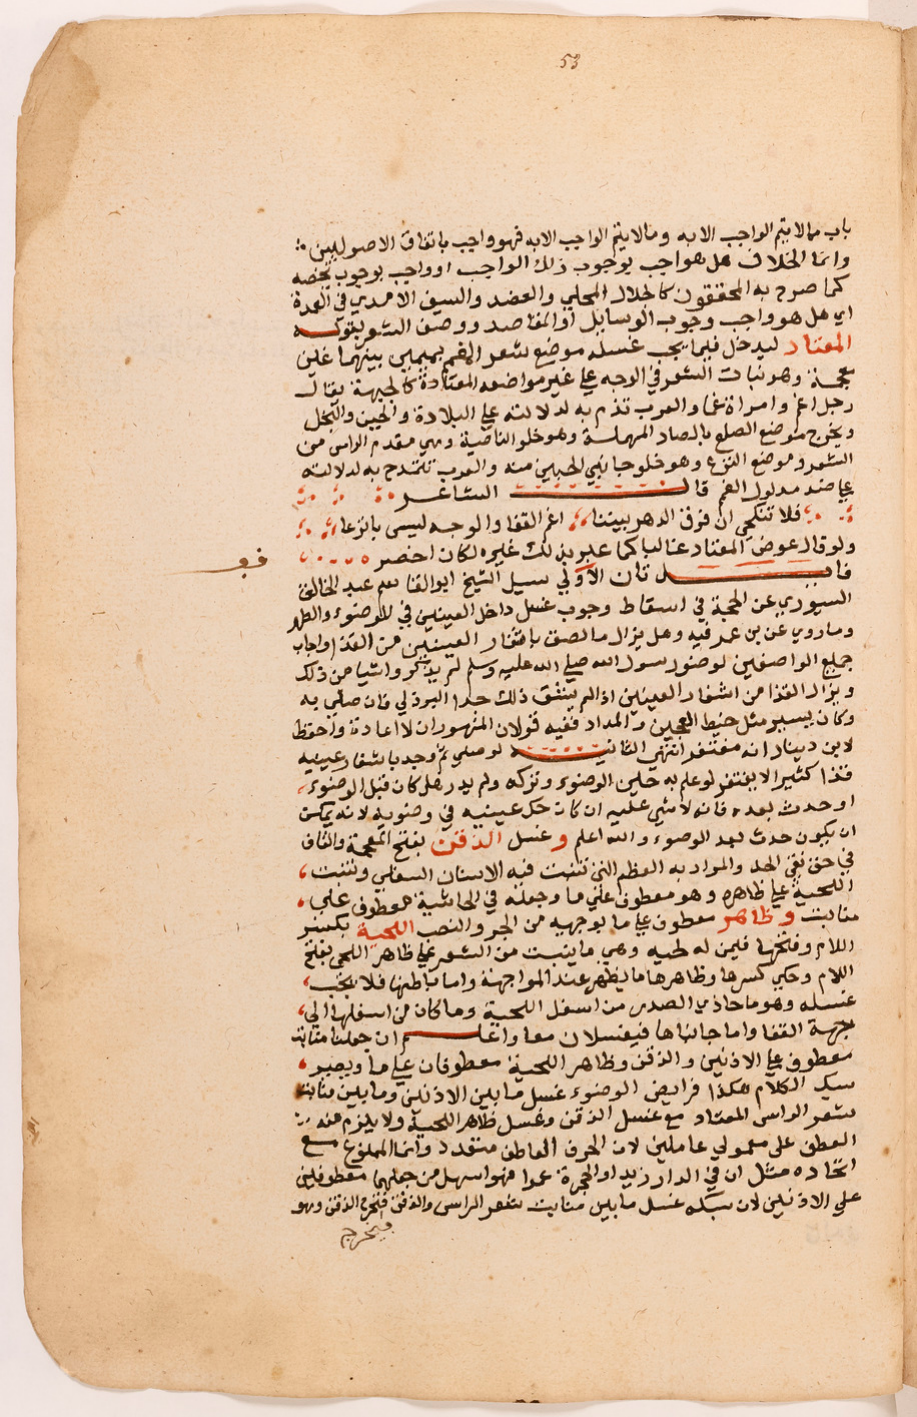 53
باب مالا يتم الواجب الا به ومالا يتم الواجب الا به فهو واجب باتفاق الاصوليين
وانما الخلاف هل هو واجب بوجوب ذلك الواجب او واجب بوجوب يخصه
كما صرح به المحققون كالجلال المحلي والعضد والسيف الامدي في العمدة
اي هل هو واجب وجوب الوسايل او المقاصد ووصف الشعر بقوله
المعتاد ليدخل فيما يجب غسله موضع شعر الغمم بميمين بينهما غين
معجمة وهو نبات الشعر في الوجه علي غير مواضعه المعتادة كالجبهة يقال
رجل اغم وامراة غما والعرب تذم به لدلالته علي البلادة والجبن والبخل
ويخرج موضع الصلع بالصاد المهملة وهو خلو الناصية وهي مقدم الراس من
الشعر وموضع النزع وهو خلو جانبي الجبهين منه والعرب تتمدح به لدلالته
علي ضد مدلول الغم قال الشاعر
فلا تنكحي ان فرق الدهر بيننا اغم القفا والوجه ليس بانزعا
ولو قال عوض المعتاد غالبا كما عبر بذلك غيره لكان اخصر
فايدتان الاولي سيل الشيخ ابو القاسم عبد الخالق
السيوري عن الحجة في اسقاط وجوب غسل داخل العينين في الوضوء والطهر
وما روي عن بن عمر فيه وهل يزال ما لصق باشفار العينين من القذا فاجاب
جميع الواصفين لوضو رسول الله صلي الله عليه وسلم لم يذكروا شيا من ذلك
ويزال القذا من اشفار العينين اذا لم يشق ذلك جدا البرزلي فان صلي به
وكان يسير مثل خيط العجين والمداد ففيه قولان المشهور ان لا اعادة واحفظ
لابن دينار انه مغتفر انتهي الثانية لو صلي ثم وجد باشفار عينيه
قذا كثيرا لا يغتفر لو علم به حين الوضوء وتركه ولم يدر هل كان قبل الوضوء
او حدث بعده فانه لا شي عليه ان كان حك عينيه في وضويه لانه يمكن
ان يكون حدث بعد الوضوء والله اعلم وغسل الذقن بفتح المعجمة والقاف
في حق نقي الخد والمراد به العظم التي تنبت فيه الاسنان السفلي وتنبت
اللحية علي ظاهره وهو معطوف علي ما وجعله في الحاشية معطوف علي
منابت وظاهر معطوف علي ما بوجهيه من الجر والنصب اللحية بكسر
اللام وفتحها فيمن له لحيه وهي ما ينبت من الشعر علي ظاهر اللحي بفتح
اللام وحكي كسرها وظاهرها ما يظهر عند المواجهة واما باطنها فلا يجب
غسله وهو ما حاذي الصدر من اسفل اللحية وما كان من اسفلها الي
جهة القفا واما جانباها فيغسلان معا واعلم ان جعلنا منابت
معطوف علي الاذنين والذقن وظاهر اللحية معطوفان علي ما ويصير
سبك الكلام هكذا فرايض الوضوء غسل ما بين الاذنين وما بين منابت
شعر الراس المعتاد مع غسل الذقن وغسل ظاهر اللحية ولا يلزم منه
العطف على معمولي عاملين لان الحرف العاطف متعدد وانما الممنوع مع
اتحاده مثل ان في الدار زيد او الحجرة عمرا فهو اسهل من جعلهما معطوفين
علي الاذنين لان سبكه غسل ما بين منابت شعر الراس والذقن فتخرج الذقن وهو
فيخرج
قف